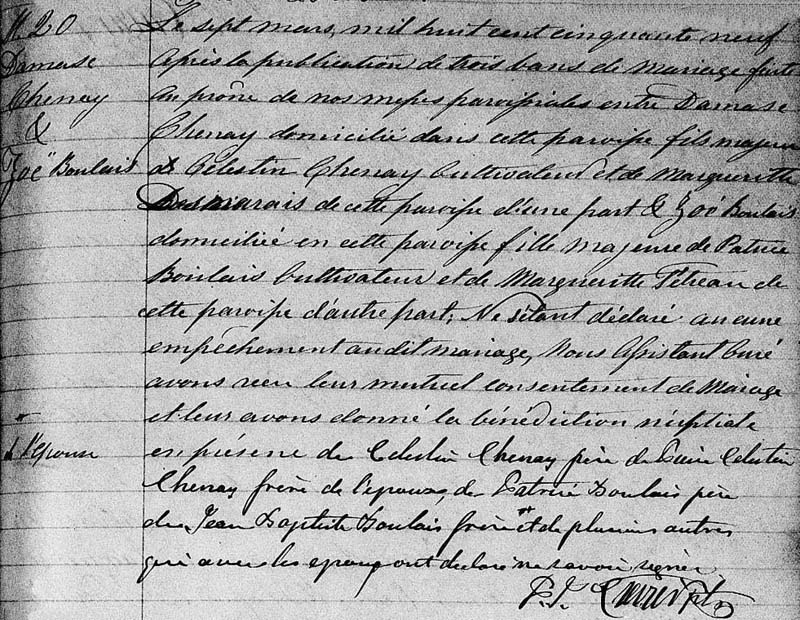 M 20
Damase
Chenay
&
Zoë Boulais
* de l'épouse
Le sept mars, mil huit cent cinquante neuf
après la publication de trois bans de mariage faite
au prône de nos messes paroissiales entre Damase
Chenay domicilié dans cette paroisse fils majeur
de Célestin Chenay Cultivateur et de Marguerite
Desmarais de cette paroisse d'une part & Zoé Boulais
domiciliée en cette paroisse fille majeure de Patrice
Boulais Cultivateur et de Margueritte Tétreau de
cette paroisse d'autre part; Ne s'étant déclaré aucune
empêchement audit mariage, Nous Assistant Curé
avons reçu leur mutuel consentement de Mariage
et leur avons donné la bénédiction nuptiale
en présence de Celestin Chenay père de Celestin
Chenay frère de l'époux, de Patrice Boulais père
de Jean Baptiste Boulais frère * et de plusieurs autres
qui avec les époux ont déclaré ne savoir signer
P. J.